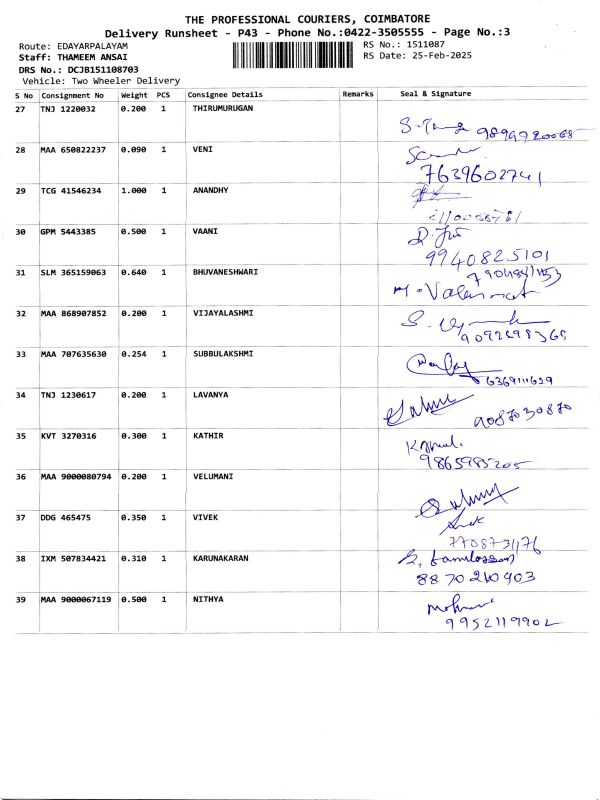 THE PROFESSIONAL COURIERS, COIMBATORE
Delivery Runsheet - P43 - Phone No.:0422-3505555 - Page No.:3
Route: EDAYARPALAYAM RS No.: 1511087
Staff: THAMEEM ANSAI RS Date: 25-Feb-2025
DRS No.: DCJB151108703
Vehicle: Two Wheeler Delivery
S No Consignment No Weight PCS Consignee Details Remarks Seal & Signature
27 TNJ 1220032 0.200 1 THIRUMURUGAN
28 MAA 650822237 0.090 1 VENI
7639602741
29 TCG 41546234 1.000 1 ANANDHY
30 GPM 5443385 0.500 1 VAANI
9940825101
31 SLM 365159063 0.640 1 BHUVANESHWARI
32 MAA 868907852 0.200 1 VIJAYALASHMI
33 MAA 707635630 0.254 1 SUBBULAKSHMI
6369111629
34 TNJ 1230617 0.200 1 LAVANYA
9087030870
35 KVT 3270316 0.300 1 KATHIR
9865985205
36 MAA 9000080794 0.200 1 VELUMANI
37 DDG 465475 0.350 1 VIVEK
38 IXM 507834421 0.310 1 KARUNAKARAN
8870210903
39 MAA 9000067119 0.500 1 NITHYA
9952119902